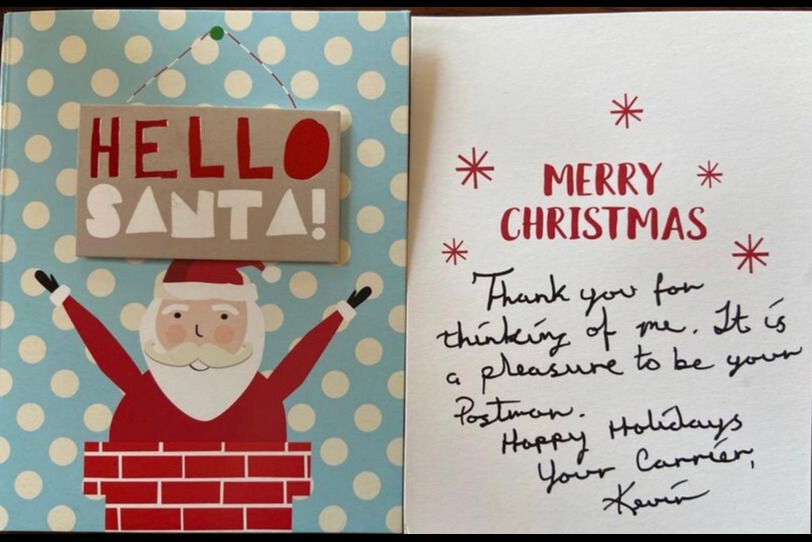 HELLO
SANTA!
MERRY
CHRISTMAS
Thank you for
thinking of me. It is
a pleasure to be your
Postman.
Happy Holidays
Your Carrier,
Kevin